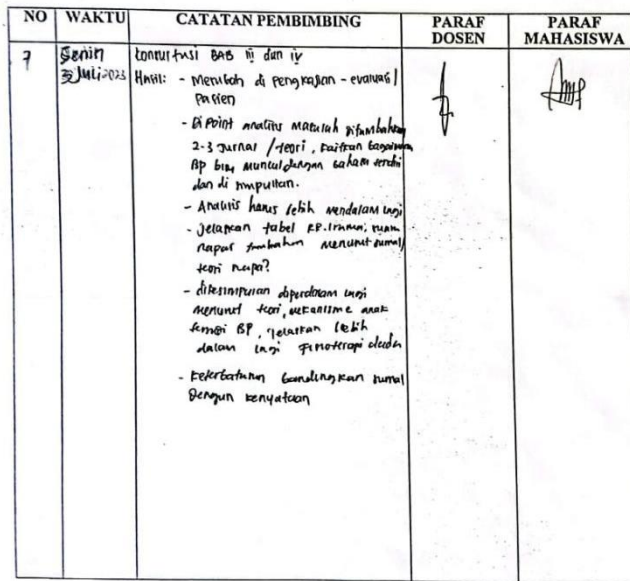 NO WAKTU CATATAN PEMBIMBING PARAF DOSEN PARAF MAHASISWA
7 Senin konsultasi BAB iii dan iv
Juli 2023 Hasil: - Merubah di pengkajian - evaluasi 1
pasien
- Di point analisis masalah ditambahkan
2-3 jurnal / teori, kaitkan bagaimana
Bp bisa muncul dengan bahasa sendiri
dan di simpulkan.
- Analisis harus lebih mendalam lagi
- Jelaskan tabel RR.
napas tambahan menurut jurnal
teori
- dikesimpulan diperdalam lagi
menurut teori, mekanisme anak
BP, jelaskan lebih
dalam lagi fisioterapi dada
- keterbatasan bandingkan jurnal
Dengan kenyataan